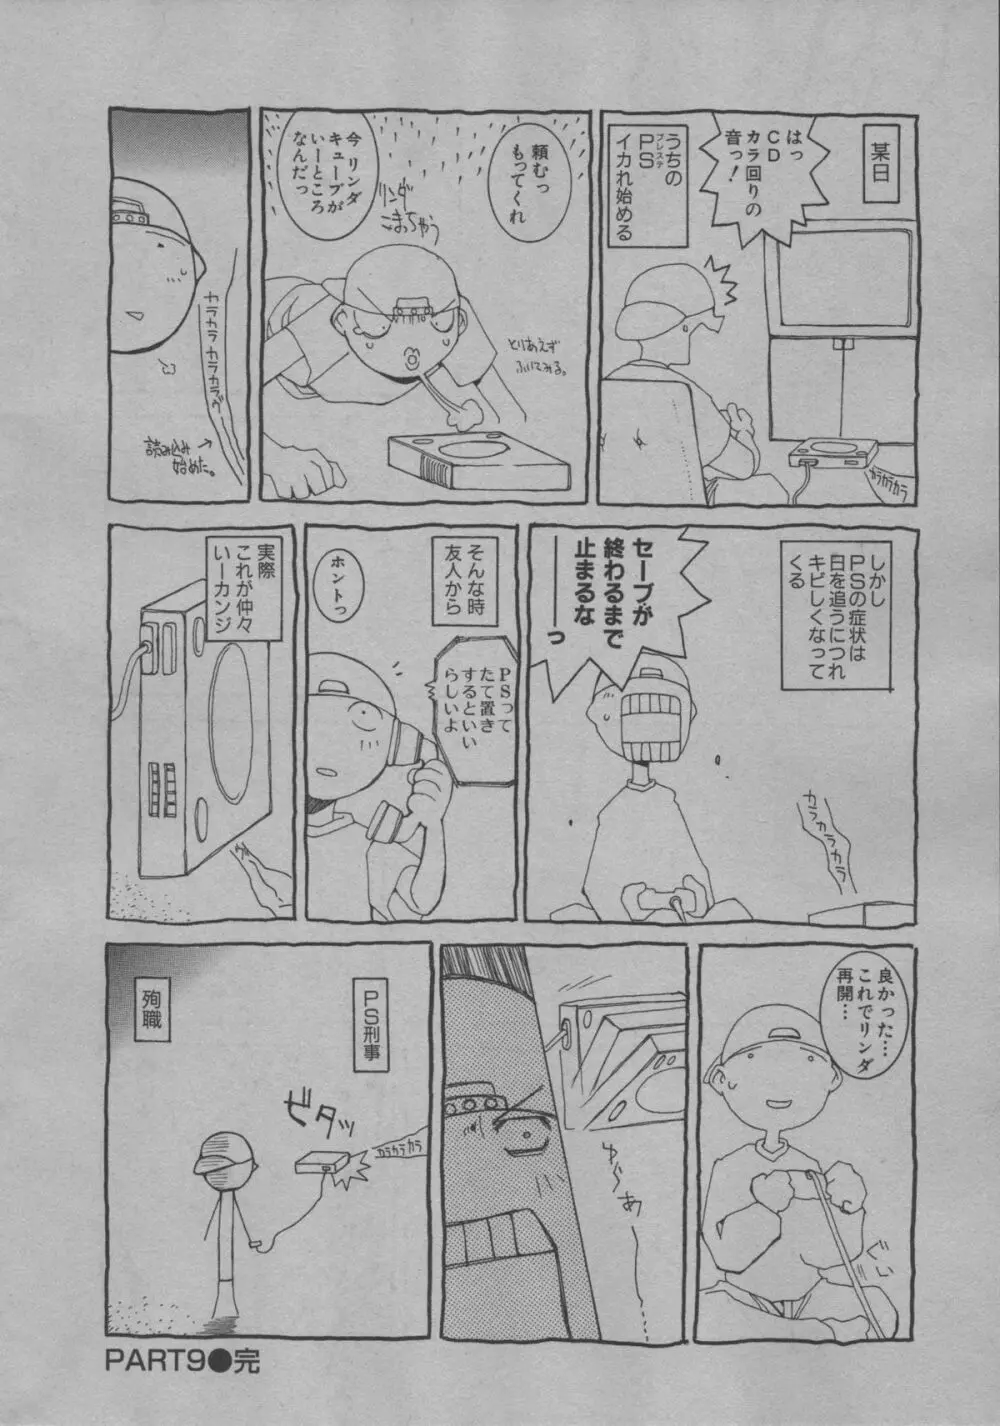 某日
はっ
CD
カラ回りの
音っ！
うちの
PS
プレステ
イカれ始める
カラカラカラ
頼むっ
もってくれ
今 リンダ
キューブが
いーところ
なんだっ
リンダ
こまっちゃう
とりあえず
ふいてみる。
カラカラカラカラヴー
読み込み
始めた。
しかし
PSの症状は
日を追うにつれ
キビしくなって
くる
セーブが
終わるまで
止まるな
――――っ
カラカラカラ
そんな時
友人から
ホントっ
PSって
たて置き
するといい
らしいよ
実際
これが仲々
いーカンジ
ヴー
良かった…
これでリンダ
再開…
ぐい
ゆらぁ
PS刑事
殉職
ビタッ
カラカラカラ
PART9●完